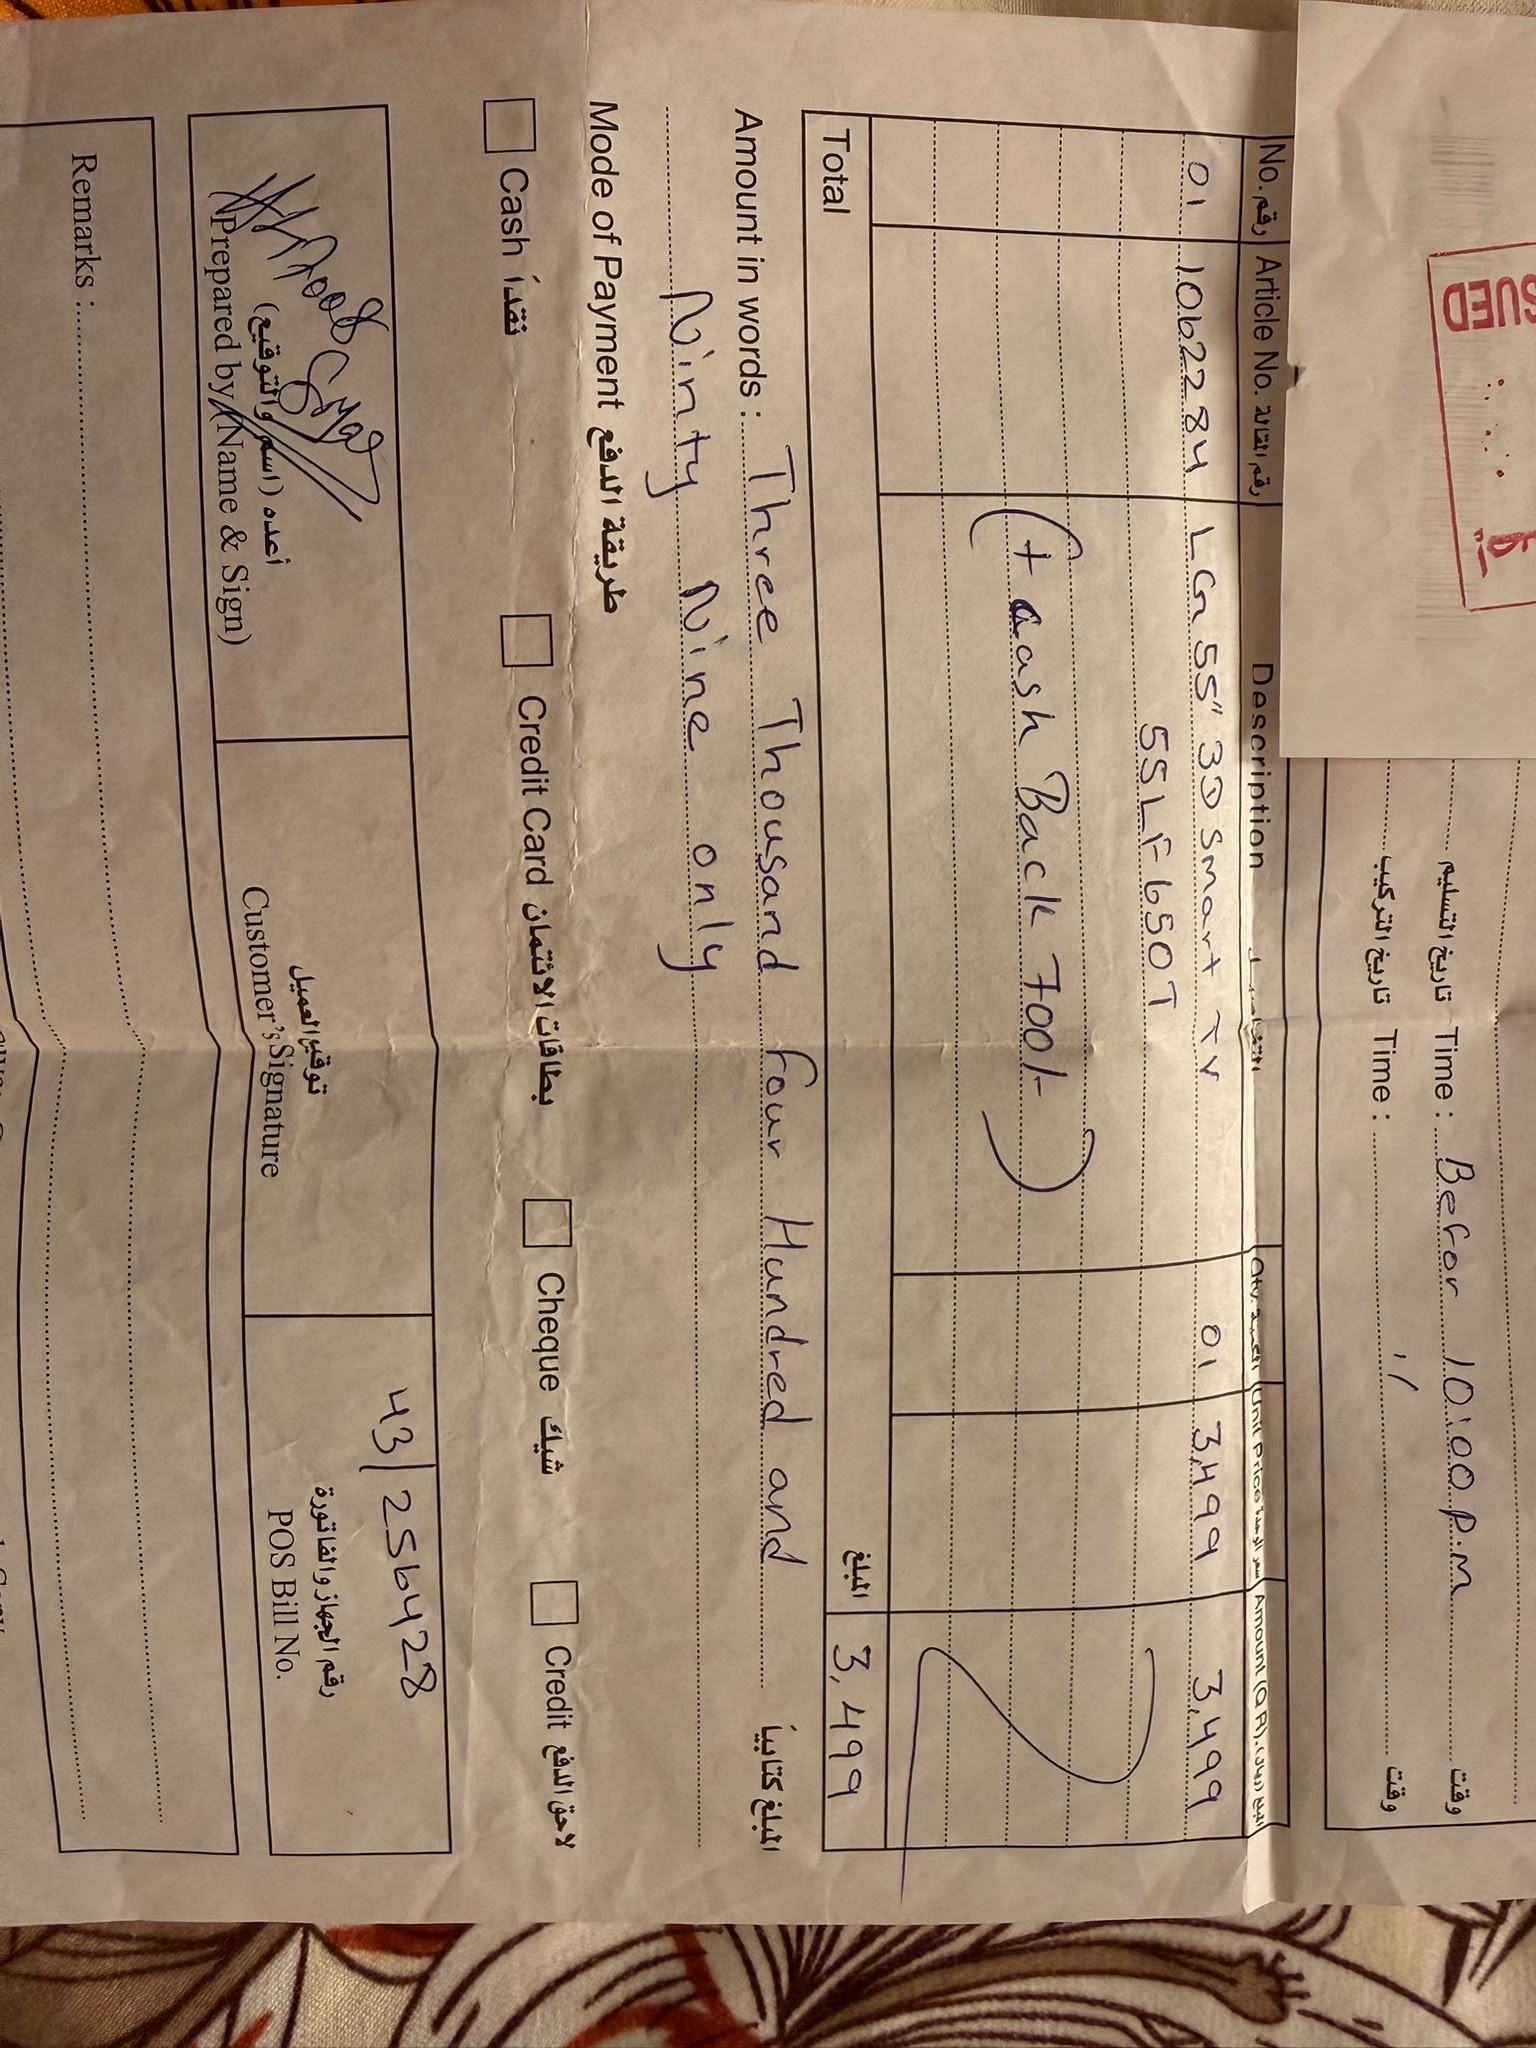 SUED
تاريخ التسليم Time : Befor 10:00 P.M وقت
تاريخ التركيب Time : 11 وقت
No. رقم Article No. Description Qty Unit Price Amount (Q.R).
01 1062284 LG 55" 3D Smart TV 01 3,499 3,499
55LF650T
(+ cash Back 700/-)
Total المبلغ 3,499
Amount in words : Three Thousand Four Hundred and المبلغ كتابياً
Ninty Nine only
Mode of Payment طريقة الدفع
Cash نقداً Credit Card بطاقات الائتمان Cheque شيك Credit لاحق الدفع
43/256428
أعده (اسم والتوقيع) توقيع العميل رقم الجهاز والفاتورة
Prepared by (Name & Sign) Customer's Signature POS Bill No.
Remarks :